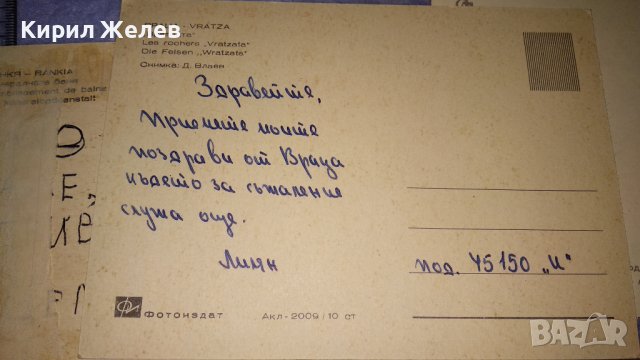 Кирил Желев
- VRATZA
Les rochers „Vratzata“
Die Felsen „Wratzata“
Снимка: Д. Влаев
Здравейте,
Приемете моите
поздрави от Враца
където за съжаление
служа още.
Лилян
под. 45150 „И“
Фотоиздат
Акл-2009/10 ст
- BANKIA
BAZAR
.bg